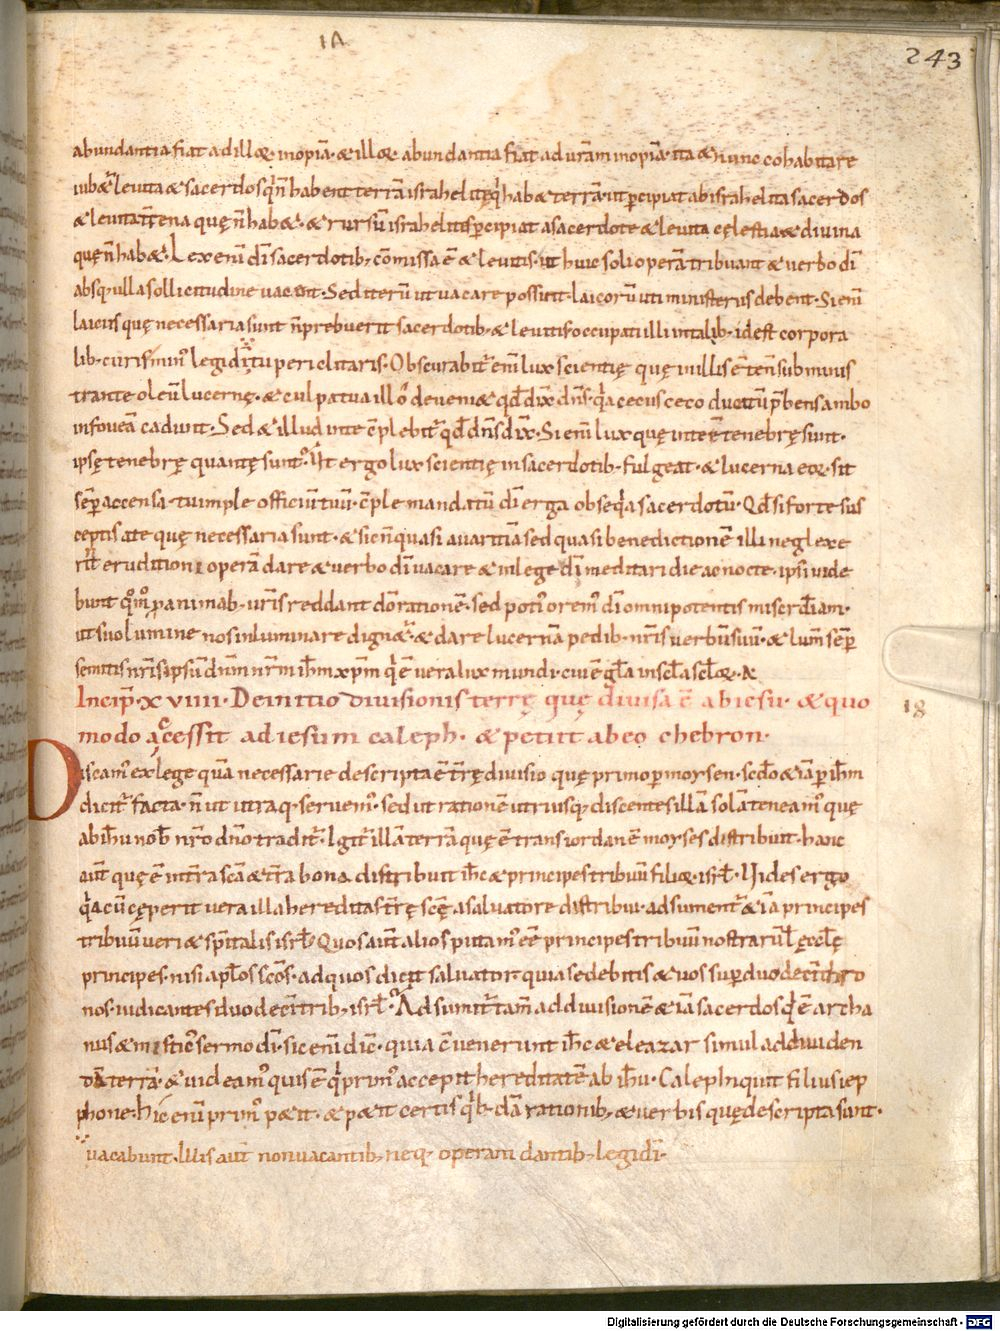 IA
243
abundantia fiat ad illoꝝ inopiā· & illoꝝ abundantia fiat ad uram inopiā· ita & nunc cohabitare
iub&ur leuita & sacerdos qui n̄ habent terrā israhelitę qui hab& terrā· ut ꝑcipiat ab israhelita sacerdos
& leuita terrena quę n̄ hab&· & rursū israhelites ꝑcipiat a sacerdote & leuita cęlestia & diuina
quę n̄ hab&· Lex enī dī sacerdotib; cōmissa ē & leuitis· ut huic soli operā tribuant & uerbo dī
absq; ulla sollicitudine uacent· Sed iterū ut uacare possint· laicorū uti ministeriis debent· Si enī
laicus quę necessaria sunt n̄ prebuerit sacerdotib; & leuitis occupati illi in talib; id est corpora
lib· curis minꝰ legi dī· tu periclitaris· Obscurabit̄ enī lux scientię quę in illis ē te n̄ subminis
trante oleū lucernę· & culpa tua illo deueni& qd̄ dix̄ dn̄s· quia cecus ceco ducatū p̄bens ambo
in foueā cadunt· Sed & illud in te cōplebit̄ qd̄ dn̄s dix̄· Si enī lux quę in te ē tenebrę sunt·
ipsę tenebrę quantę sunt? Ut ergo lux scientię in sacerdotib· fulgeat· & lucerna eoꝝ sit
semꝑ accensa· tu imple officiū tuū· cōple mandatū dī erga obsequia sacerdotū· Qd̄ si forte sus
ceptis a te quę necessaria sunt· & si c̄ n̄ quasi auaritiā sed quasi benedictionē illi neglexe
rit eruditioni operā dare & uerbo dī uacare & in lege dī meditari die ac nocte· ipsi uide
bunt quomodo ꝓ animab; uris reddant dō rationē· sed potiꝰ oremꝰ dī omnipotentis misericordiam·
ut suo lumine nos inluminare dign&ur· & dare lucernā pedib· nris uerbū suū· & lum̄ semꝑ
semitis nris ipsū dnm̄ nr̄m ihm̄ xpm̄ qui ē uera lux mundi· cui ē gl̄a in scl̄a scl̄oꝝ· A
Incip̄· xviiii· De initio diuisionis terrę quę diuisa ē ab iesu· & quo
modo accessit ad iesum caleph· & petiit ab eo chebron·
18
Discamꝰ ex lege quā necessarie descripta ē terrę diuisio quę primo ꝑ moysen· scdo & iā ꝑ ihm̄
dicit̄ facta· n̄ ut utraq· seruemꝰ· sed ut rationē utriusq; discentes illā solā teneamꝰ quę
ab ihū nob̄ nr̄o dn̄o tradit̄· Igit̄ illā terrā quę ē trans iordanē moyses distribuit· hanc
aūt quę ē int̄ra scā & t̄ra bona distribuit ihc̄ & principes tribuū filioꝝ isrl̄· Uides ergo
quia cū cęperit uera illa hereditas terrę scę a saluatore distribui· adsument̄ & iā principes
tribuū ueri & spitalis isrl̄· Quos aūt alios putamꝰ eē principes tribuū nostrarū l̄ ęccl̄ę
principes· nisi apl̄os scōs· ad quos dicit saluator· quia sedebitis & uos suꝑ duodecī thro
nos iudicantes duodecī trib; isrl̄· Adsumit̄ tam̄ ad diuisionē & iā sacerdos qui ē archa
nus & mistic̄ sermo dī· sic enī dic̄· quia cōuenerunt ihc̄ & eleazar simul ad diuiden
dā terrā· & uideamꝰ quis ē qui primꝰ accepit hereditatē ab ihū· Caleph inquit filius iep
phone· hic enī primꝰ p&it· & p&it certis quib· dā rationib; & uerbis quę descripta sunt·
uacabunt· Illis aūt non uacantib; neq; operam dantib; legi dī·
Digitalisierung gefördert durch die Deutsche Forschungsgemeinschaft - DFG